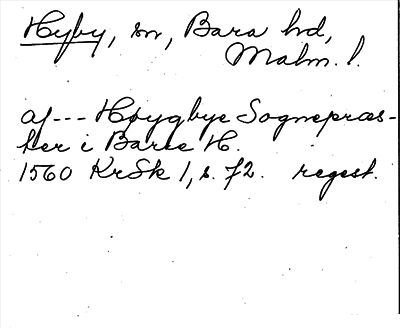 Hyby, sn, Bara hd,
Malm. l.
af--- Høygbye Sognepræs-
ter i Barre H.
1560 KrSk 1, s. 72. regest.